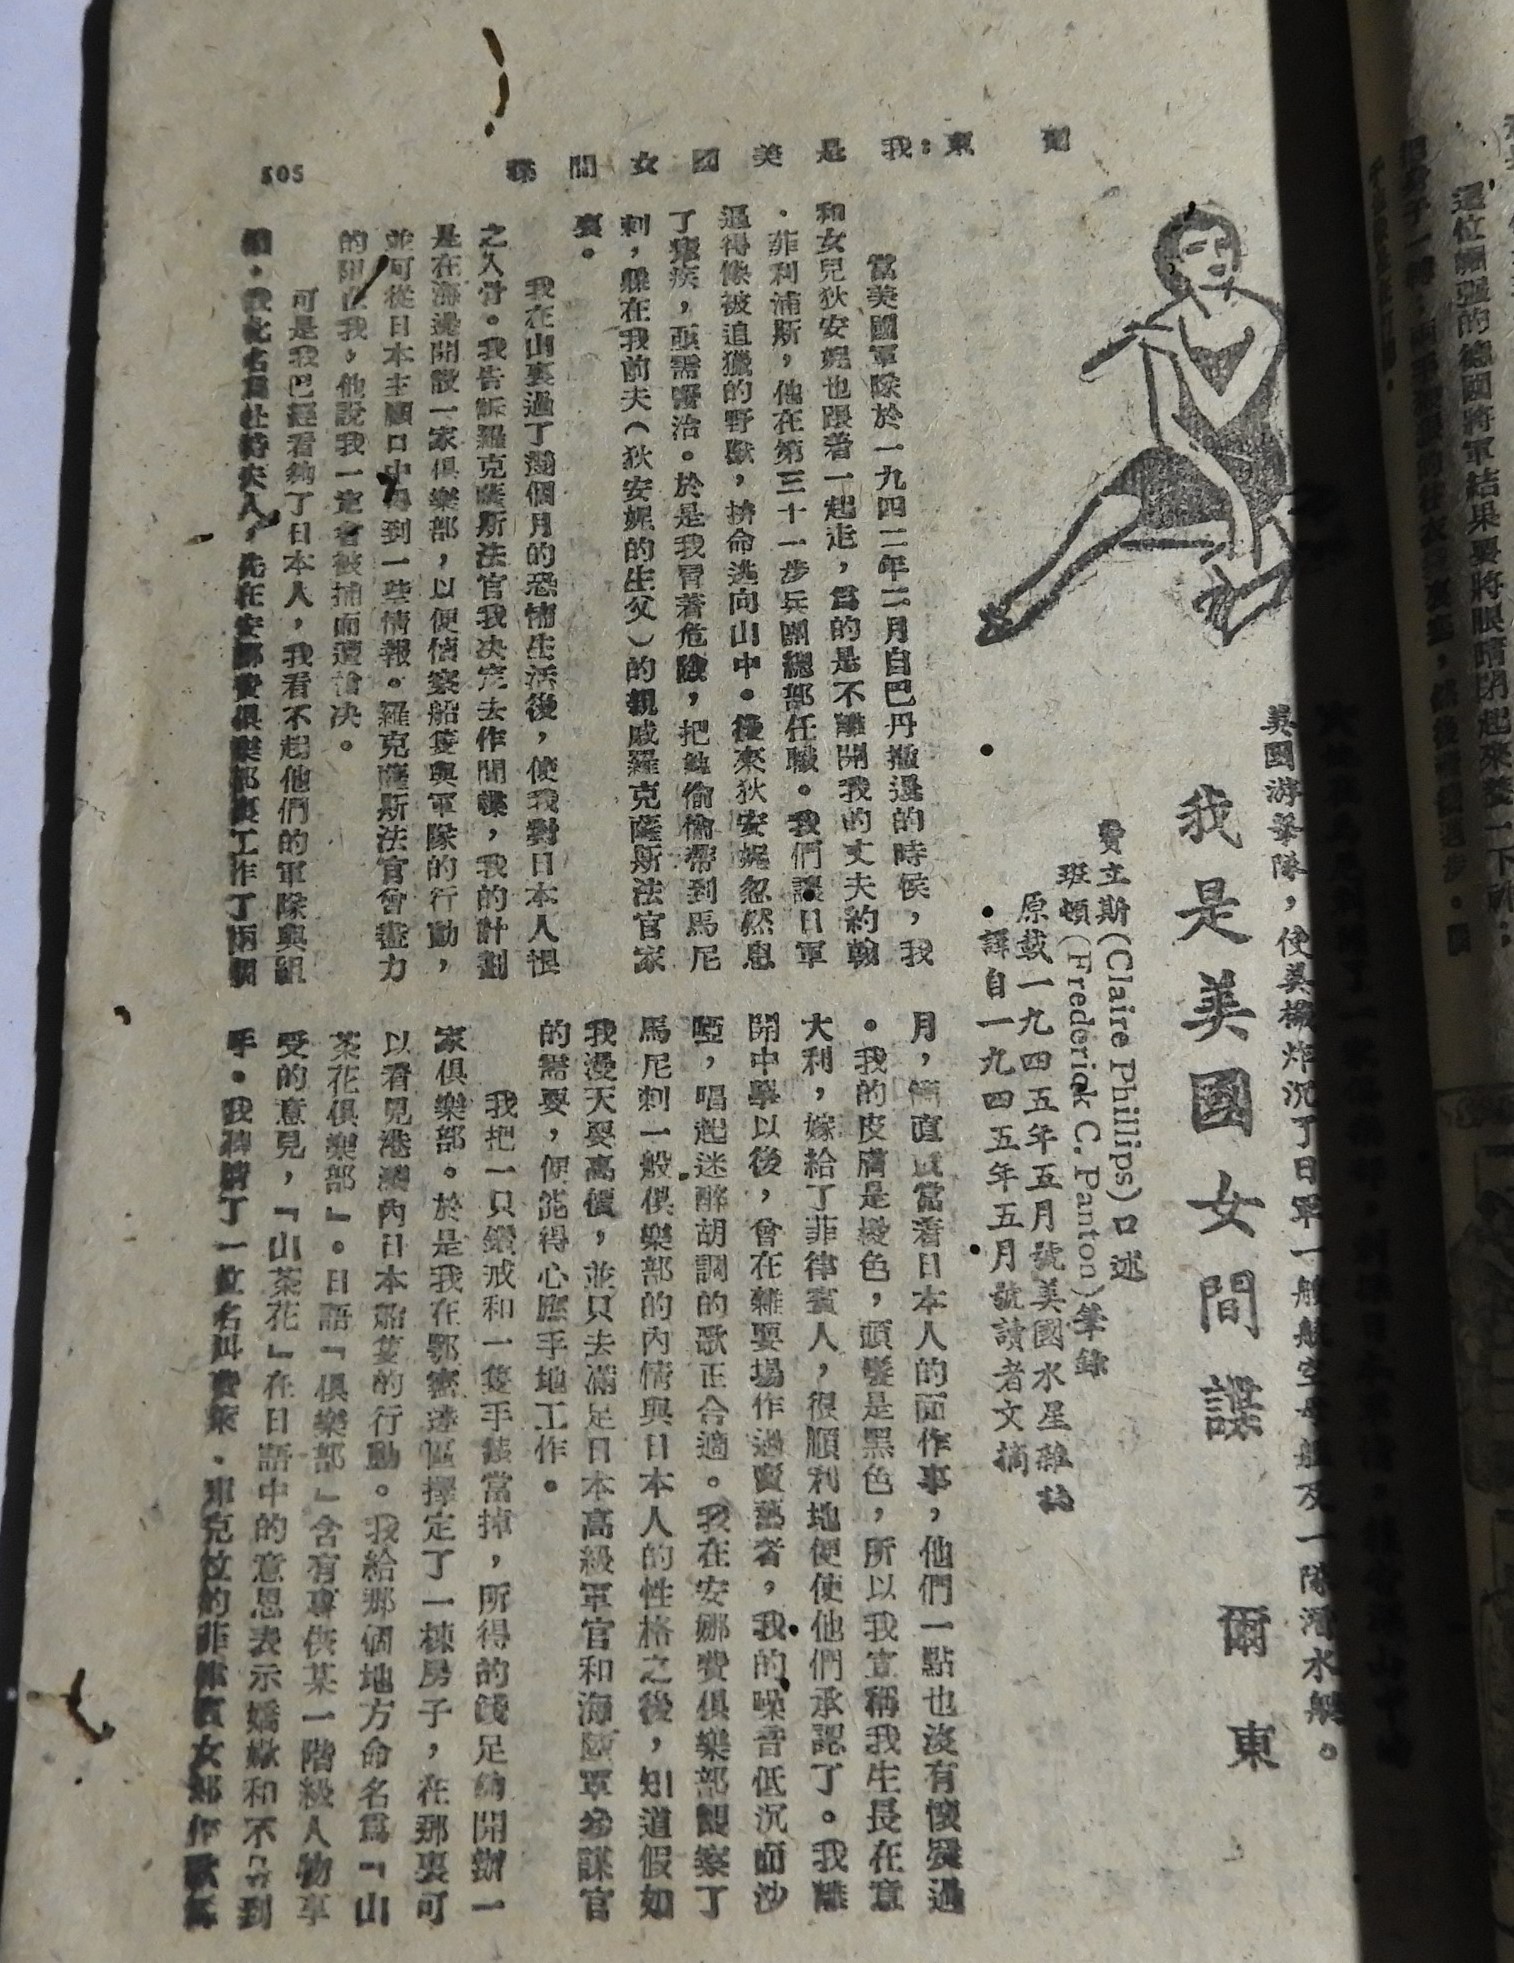 爾東：我是美國女間諜
505
美國游擊隊，使美機炸沉了日軍一艘航空母艦及一隊潛水艇。
我是美國女間諜
爾東
費立斯(Claire Phillips)口述
班頓(Frederick C. Panton)筆錄
原載一九四五年五月號美國水星雜誌
譯自一九四五年五月號讀者文摘
當美國軍隊於一九四二年二月自巴丹撤退的時侯，我
和女兒狄安妮也跟着一起走，爲的是不離開我的丈夫約翰
．菲利浦斯，他在第三十一步兵團總部任職。我們讓日軍
逼得像被追獵的野獸，拚命逃向山中。後來狄安妮忽然患
了瘧疾，亟需醫治。於是我冒著危險，把她偷偷帶到馬尼
刺，躲在我前夫（狄安妮的生父）的親戚羅克薩斯法官家
裏。
我在山裏過了幾個月的恐怖生活後，使我對日本人恨
之入骨。我告訴羅克薩斯法官我决定去作間諜，我的計劃
是在海邊開設一家俱樂部，以便偵察船隻與軍隊的行動，
並可從日本主顧口中得到一些情報。羅克薩斯法官曾盡力
的阻止我，他說我一定會被捕而遭槍决。
可是我已經看夠了日本人，我看不起他們的軍隊與組
織。我化名爲杜特夫人，先在安娜費俱樂部裏工作了兩個
月，簡直就當着日本人的面作事，他們一點也沒有懷疑過
。我的皮膚是棕色，頭髮是黑色，所以我宣稱我生長在意
大利，嫁給了菲律賓人，很順利地便使他們承認了。我離
開中學以後，曾在雜耍場作過賣藝者，我的嗓音低沉而沙
啞，唱起迷醉胡調的歌正合適。我在安娜費俱樂部觀察了
馬尼刺一般俱樂部的內情與日本人的性格之後，知道假如
我漫天要高價，並只去滿足日本高級軍官和海陸軍參謀官
的需要，便能得心應手地工作。
我把一只鑽戒和一隻手錶當掉，所得的錢足夠開辦一
家俱樂部。於是我在鄂密達區擇定了一棟房子，在那裏可
以看見港灣內日本船隻的行動。我給那個地方命名爲「山
茶花俱樂部」。日語「俱樂部」含有專供某一階級人物享
受的意見，「山茶花」在日語中的意思表示嬌嫩和不易到
手。我聘請了一位名叫費萊．
的菲律賓女郎作歌舞